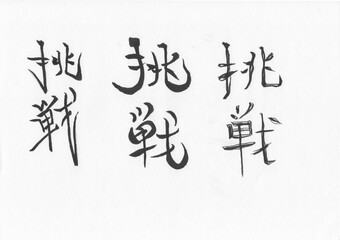 挑戦
挑戦
挑戦